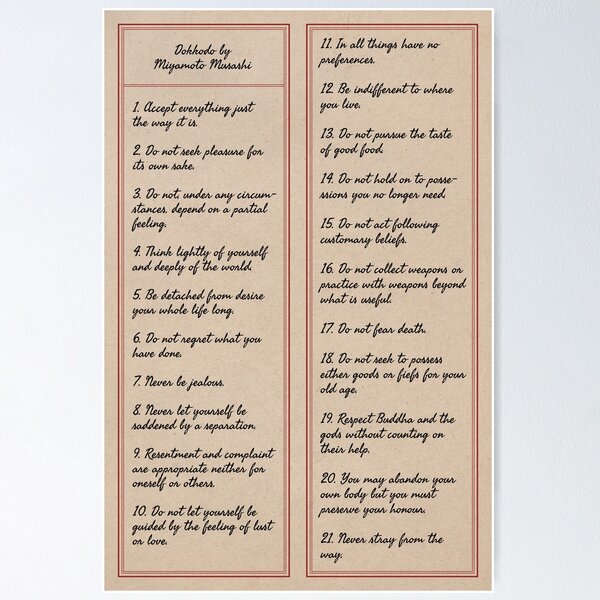 Dokkodo by
Miyamoto Musashi
1. Accept everything just
the way it is.
2. Do not seek pleasure for
its own sake.
3. Do not, under any circum-
stances, depend on a partial
feeling.
4. Think lightly of yourself
and deeply of the world.
5. Be detached from desire
your whole life long.
6. Do not regret what you
have done.
7. Never be jealous.
8. Never let yourself be
saddened by a separation.
9. Resentment and complaint
are appropriate neither for
oneself or others.
10. Do not let yourself be
guided by the feeling of lust
or love.
11. In all things have no
preferences.
12. Be indifferent to where
you live.
13. Do not pursue the taste
of good food.
14. Do not hold on to posse-
ssions you no longer need.
15. Do not act following
customary beliefs.
16. Do not collect weapons or
practice with weapons beyond
what is useful.
17. Do not fear death.
18. Do not seek to possess
either goods or fiefs for your
old age.
19. Respect Buddha and the
gods without counting on
their help.
20. You may abandon your
own body but you must
preserve your honour.
21. Never stray from the
way.